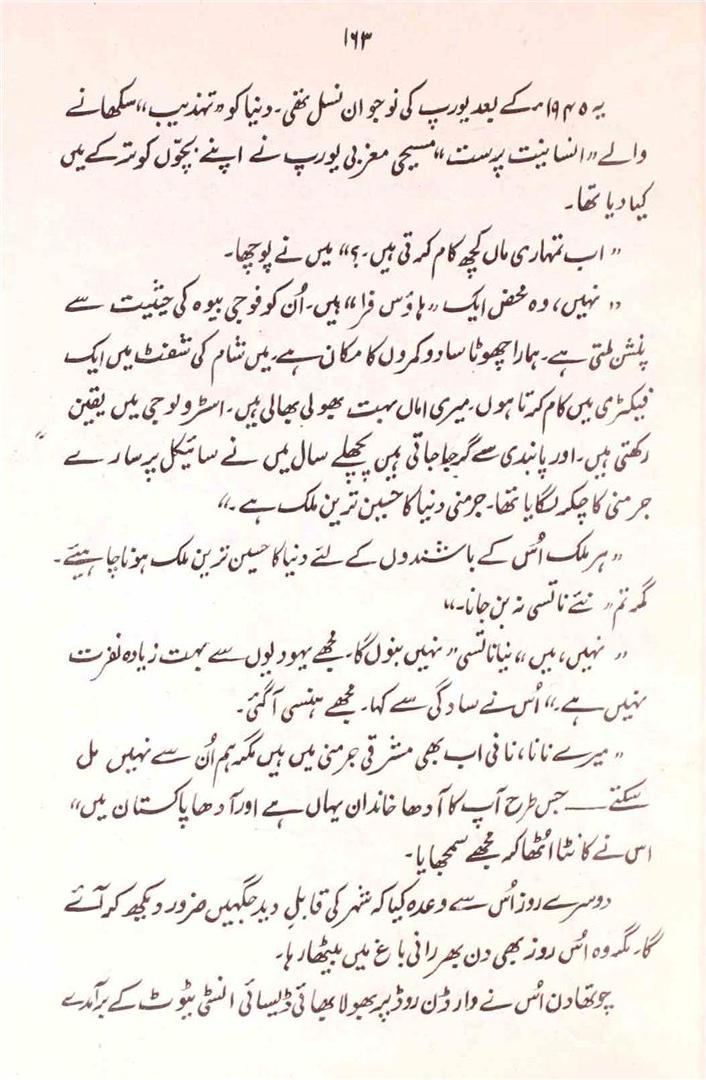 ۱۶۳
یہ ۱۹۴۵ء کے بعد یورپ کی نوجوان نسل تھی۔ دنیا کو ”تہذیب“ سکھانے
والے ”انسانیت پرست“ مسیحی مغربی یورپ نے اپنے بچّوں کو ترکے میں
کیا دیا تھا۔
”اب تمہاری ماں کچھ کام کرتی ہیں۔؟“ میں نے پوچھا۔
”نہیں، وہ محض ایک ”ہاؤس فرا“ ہیں۔ اُن کو فوجی بیوہ کی حیثیت سے
پنشن ملتی ہے۔ ہمارا چھوٹا سا دو کمروں کا مکان ہے۔ میں شام کی شفٹ میں ایک
فیکٹری میں کام کرتا ہوں۔ میری اماں بہت بھولی بھالی ہیں۔ اسٹرولوجی میں یقین
رکھتی ہیں۔ اور پابندی سے گرجا جاتی ہیں پچھلے سال میں نے سائیکل پر سارے
جرمنی کا چکر لگایا تھا۔ جرمنی دنیا کا حسین ترین ملک ہے۔“
”ہر ملک اُس کے باشندوں کے لئے دنیا کا حسین ترین ملک ہونا چاہیئے۔
مگر تم ”نئے ناتسی نہ بن جانا۔“
”نہیں، میں ”نیا ناتسی“ نہیں بنوں گا۔ مجھے یہودیوں سے بہت زیادہ نفرت
نہیں ہے۔“ اُس نے سادگی سے کہا۔ مجھے ہنسی آ گئی۔
”میرے نانا، نانی اب بھی مشرقی جرمنی میں ہیں مگر ہم اُن سے نہیں مل
سکتے — جس طرح آپ کا آدھا خاندان یہاں ہے اور آدھا پاکستان میں“
اس نے کانٹا اُٹھا کر مجھے سمجھایا۔
دوسرے روز اُس سے وعدہ کیا کہ شہر کی قابلِ دید جگہیں ضرور دیکھ کر آئے
گا۔ مگر وہ اُس روز بھی دن بھر رانی باغ میں بیٹھا رہا۔
چوتھا دن اُس نے وارڈن روڈ پر بھولا بھائی ڈیسائی انسٹی ٹیوٹ کے برآمدے